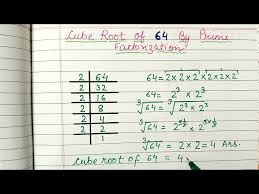 Cube Root of 64 By Prime
Factorization
2 | 64
2 | 32
2 | 16
2 | 8
2 | 4
2 | 2
1
64 = 2×2×2×2×2×2
64 = 2³ × 2³
³√64 = ³√2³ × 2³
³√64 = 2^(3×1/3) × 2^(3×1/3)
³√64 = 2 × 2 = 4 Ans.
Cube root of 64 = 4